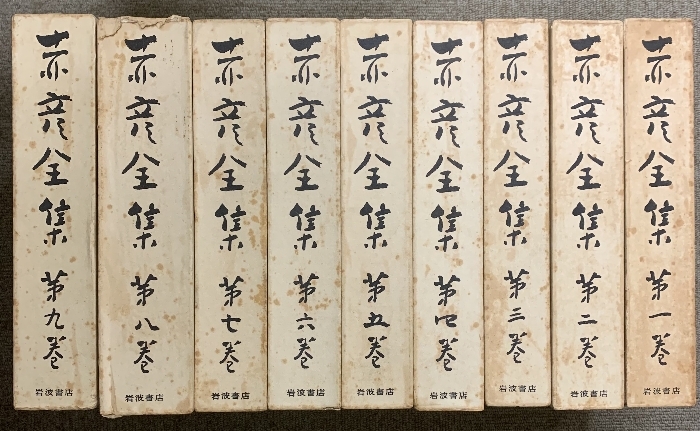 赤彦全集 第一巻
岩波書店
赤彦全集 第二巻
岩波書店
赤彦全集 第三巻
岩波書店
赤彦全集 第四巻
岩波書店
赤彦全集 第五巻
岩波書店
赤彦全集 第六巻
岩波書店
赤彦全集 第七巻
岩波書店
赤彦全集 第八巻
岩波書店
赤彦全集 第九巻
岩波書店